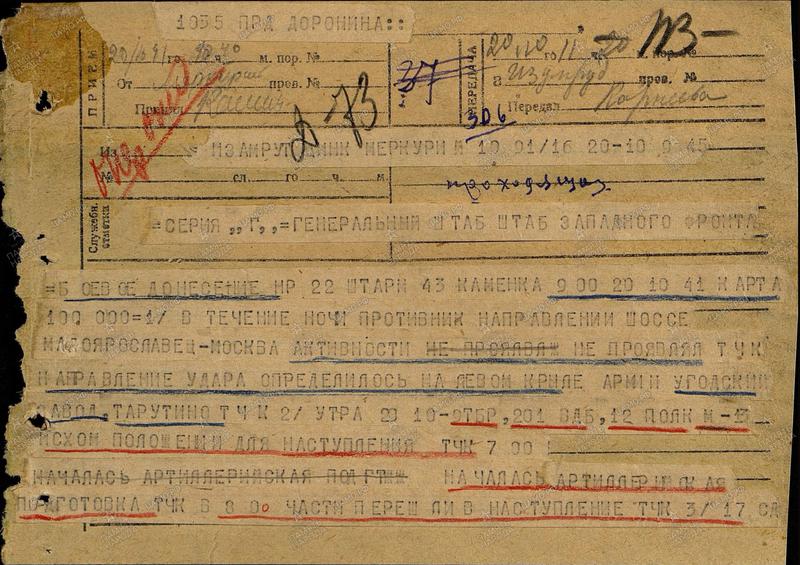 1035 ПРД ДОРОНИНА::
ПРИЕМ
го м. пор. №
От прев. №
37
ПЕРЕДАЧА
го
прев. №
Передал Карнеева
73
306
Из ИЗАМРУТДНИК МЕРКУРИ № 10 91/16 20-10 9 45
№ сл. го ч. м.
Служебн. отметки
=СЕРИЯ ,,Г,,=ГЕНЕРАЛЬНЫЙ ШТАБ ШТАБ ЗАПАДНОГО ФРОНТА
=БОЕВОЕ ДОНЕСЕНИЕ НР 22 ШТАРМ 43 КАМЕНКА 9 00 20 10 41 КАРТА
100 000=1/ В ТЕЧЕНИЕ НОЧИ ПРОТИВНИК НАПРАВЛЕНИИ ШОССЕ
МАЛОЯРОСЛАВЕЦ-МОСКВА АКТИВНОСТИ НЕ ПРОЯВЛЯЛ ТЧК
НАПРАВЛЕНИЕ УДАРА ОПРЕДЕЛИЛОСЬ НА ЛЕВОМ КРИЛЕ АРМИИ УГОДСКИЙ
ЗАВОД,ТАРУТИНО ТЧК 2/ УТРА 20 10-9ТБР,201 ВДБ,12 ПОЛК М-13
ИСХОМ ПОЛОЖЕНИИ ДЛЯ НАСТУПЛЕНИЯ ТЧК 7 00
НАЧАЛАСЬ АРТИЛЛЕРИЙСКАЯ НАЧАЛАСЬ АРТИЛЛЕРИЙСКАЯ
ПОДГОТОВКА ТЧК В 8 00 ЧАСТИ ПЕРЕШЛИ В НАСТУПЛЕНИЕ ТЧК 3/ 17 СД